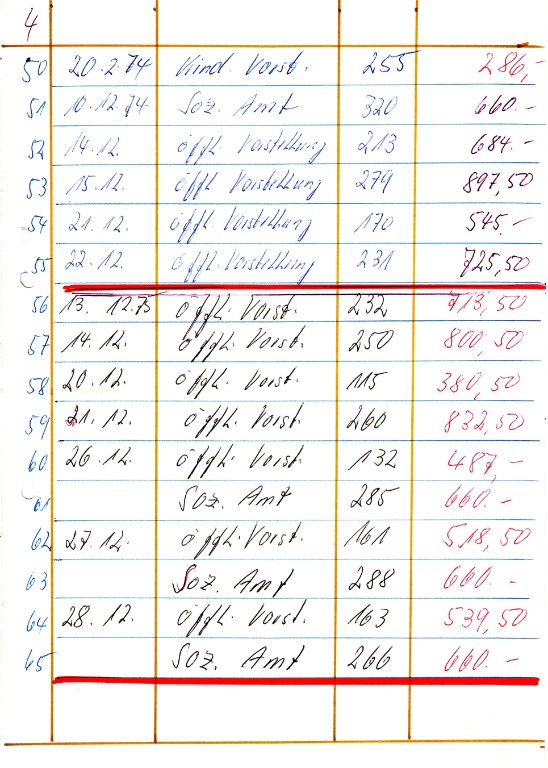 4
50 20.2.74 Kind. Vorst. 255 286,-
51 10.12.74 Soz. Amt 320 660.-
52 14.12. öffl. Vorstellung 213 684.-
53 15.12. öffl. Vorstellung 279 897,50
54 21.12. öffl. Vorstellung 170 545.-
55 22.12. öffl. Vorstellung 231 725,50
56 13. 12.75 öffl. Vorst. 232 713,50
57 14.12. öffl. Vorst. 250 800,50
58 20.12. öffl. Vorst. 115 380,50
59 21.12. öffl. Vorst. 260 832,50
60 26.12. öffl. Vorst. 132 487,-
61 Soz. Amt 285 660.-
62 27.12. öffl. Vorst. 161 518,50
63 Soz. Amt 288 660.-
64 28.12. öffl. Vorst. 163 539,50
65 Soz. Amt 266 660.-